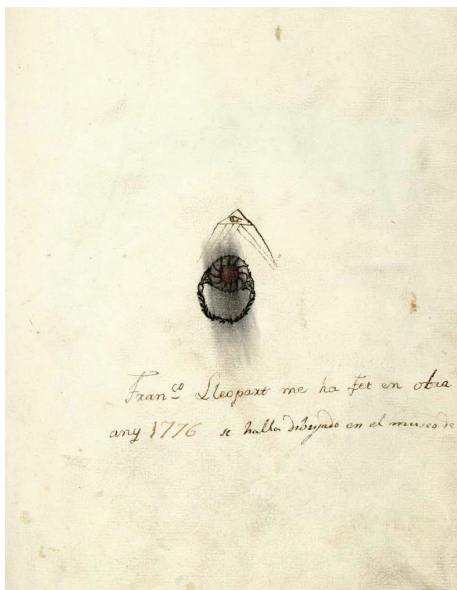 Fran.co Lleopart me ha fet en obra
any 1776 se halla dibuyado en el museo de